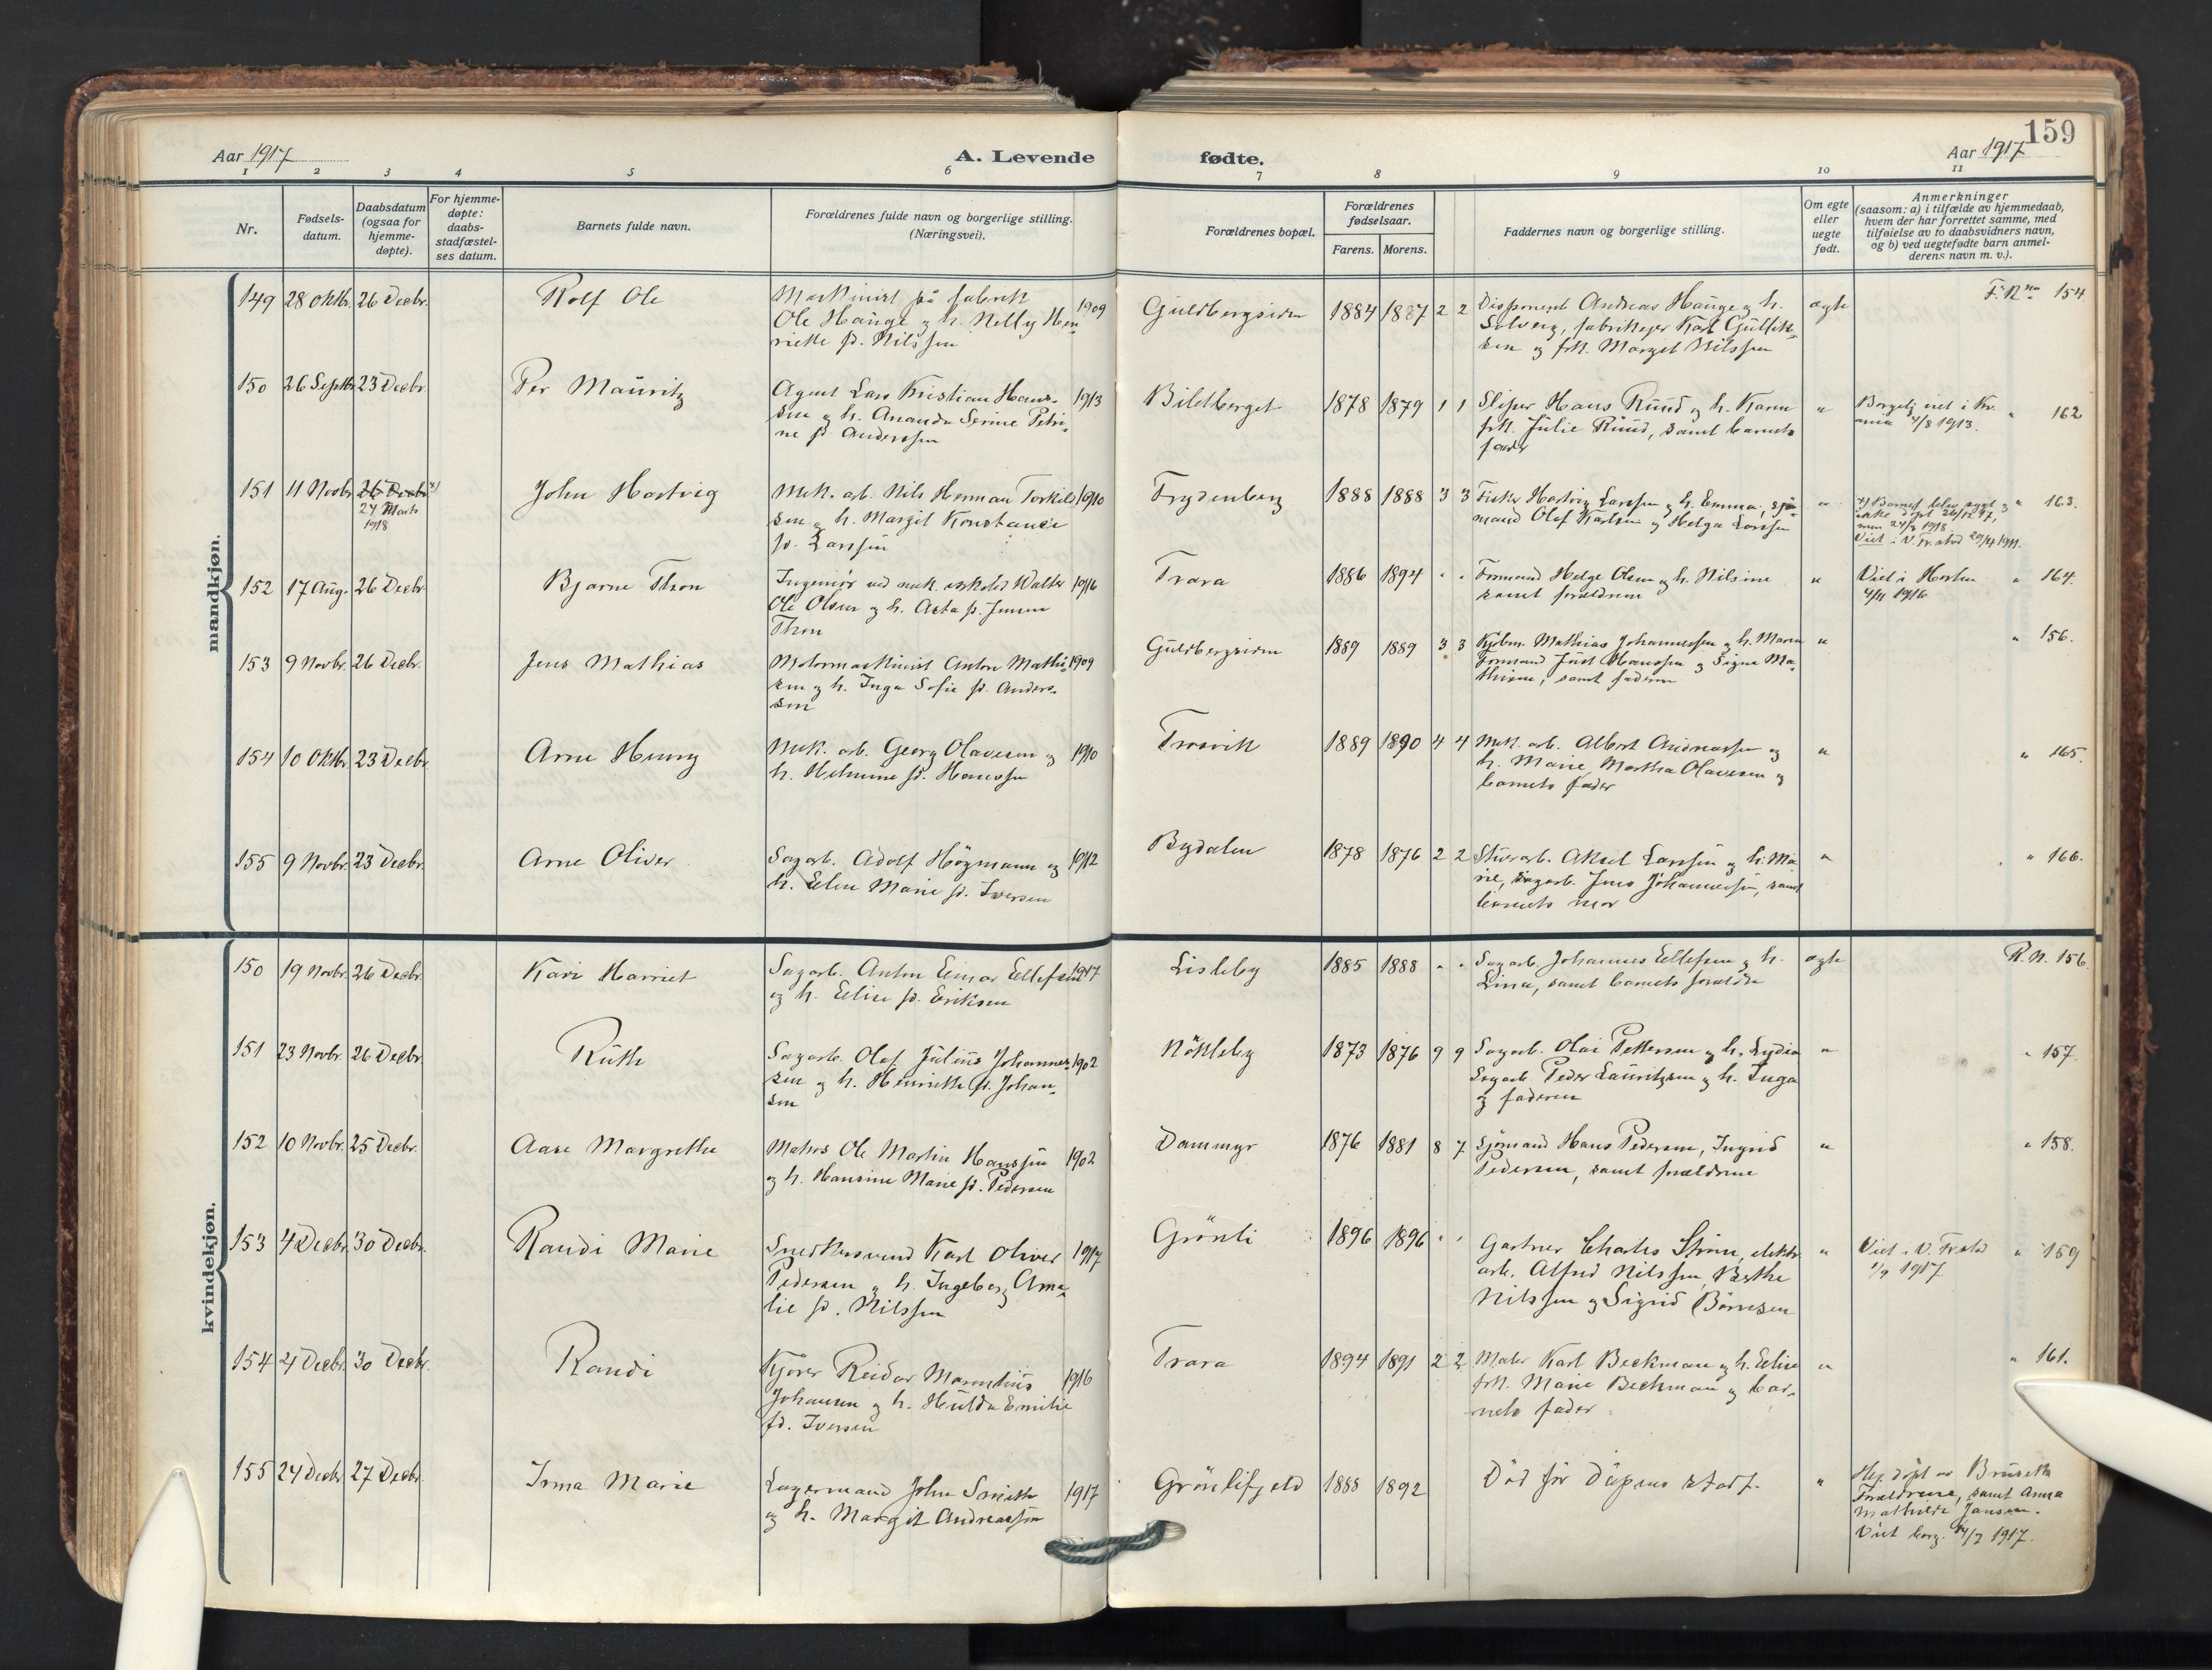 159
Aar 1917
A. Levende
fødte.
Aar 1917
1 2 3 4 5 6 7 8 9 10 11
Nr.
Fødsels-
datum.
Daabsdatum
(ogsaa for
hjemme-
døpte).
For hjemme-
døpte:
daabs-
stadfæstel-
ses datum.
Barnets fulde navn.
Forældrenes fulde navn og borgerlige stilling.
(Næringsvei).
Forældrenes bopæl.
Forældrenes
fødselsaar.
Farens. Morens.
Faddernes navn og borgerlige stilling.
Om egte
eller
uegte
født.
Anmerkninger
(saasom: a) i tilfælde av hjemmedaab,
hvem der har forrettet samme, med
tilføielse av to daabsvidners navn,
og b) ved uegtefødte barn anmel-
derens navn m. v.).
mandkjøn.
149 28 Oktbr. 26 Decbr. Rolf Ole
Maskinist på fabrik
Ole Hauge og h. Nelly Hen-
riette fd. Nilssen
1909
Guldbergsiden 1884 1887 2 2
Disponent Andreas Hauge og h.
Solveig, fabrikeier Karl Gullik-
sen og frk. Margit Nilssen
ægte
154
150 26 Septbr. 23 Decbr. Per Mauritz
Agent Lars Kristian Hans-
sen og h. Ananda Serine Petri-
ne fd. Anderssen
1913
Bildberget 1878 1879 1 1
Sliper Hans Ruud og h. Karen
frk. Julie Ruud, samt barnets
fader
"
Borgelig viet i Kr.
ania 4/8 1913.
" 162
151 11 Novbr. 26 Decbr. x)
24 Marts
1918
John Hartvig
Mek. arb. Nils Herman Torkild-
sen og h. Margit Konstance
fd. Larssen
1910
Frydenberg 1888 1888 3 3
Fisker Hartvig Larssen og h. Emma, sjø-
mand Olaf Karlsen og Helga Larssen
"
x) Barnet blev sygt,
ikke døpt 26/12 17,
men 24/3 1918
Viet i V. Fr.stad 20/4 1911.
" 163.
152 17 Aug. 26 Decbr. Bjarne Thon
Ingeniør ved mek. verksted Walter
Ole Olsen og h. Asta fd. Jensen
Thon
1916
Trara 1886 1894 " "
Formand Helge Olsen og h. Nilsine
samt forældrene
"
Viet i Horten
4/11 1916
" 164.
153 9 Novbr. 26 Decbr. Jens Mathias
Motormaskinist Anton Mathi-
sen og h. Inga Sofie fd. Anders-
sen
1909
Guldbergsiden 1889 1889 3 3
Kjøbm. Mathias Johannessen og h. Maren
Formand Just Hanssen og Signe Ma-
thisen, samt faderen
"
" 156.
154 10 Oktbr. 23 Decbr. Arne Henry
Mek. arb. Georg Olavesen og
h. Helmine fd. Hanssen
1910
Trosvik 1889 1890 4 4
Mek. arb. Albert Andreassen og
h. Marie, Martha Olavesen og
barnets fader
"
" 165.
155 9 Novbr. 23 Decbr. Arne Oliver
Sagarb. Adolf Høymann og
h. Elen Marie fd. Iversen
1912
Bydalen 1878 1876 2 2
Stuerarb. Aksel Larssen og h. Ma-
rie, Sagarb. Jens Johannessen, samt
barnets mor
"
" 166.
kvindekjøn.
150 19 Novbr. 26 Decbr. Kari Harriet
Sagarb. Anton Einar Ellefsen
og h. Elise fd. Eriksen
1917
Lisleby 1885 1888 " "
Sagarb. Johannes Ellefsen og h.
Lina, samt barnets forældre
ægte
R. N. 156.
151 23 Novbr. 26 Decbr. Ruth
Sagarb. Olaf Julius Johannes-
sen og h. Henriette fd. Johan-
sen
1902
Nökleby 1873 1876 9 9
Sagarb. Olai Pettersen og h. Lydia
Sagarb. Peder Lauritzsen og h. Inga
og faderen
"
" 157.
152 10 Novbr. 25 Decbr. Aase Margrethe
Matros Ole Martin Hanssen
og h. Hansine Marie fd. Pedersen
1902
Dammyr 1876 1881 8 7
Sjømand Hans Pedersen, Ingrid
Pedersen, samt forældrene
"
" 158.
153 4 Decbr. 30 Decbr. Randi Marie
Snedkersvend Karl Oliver
Pedersen og h. Ingeborg Ama-
lie fd. Nilssen
1917
Grönli 1896 1896 " "
Gartner Charles Ström, elektr.
arb. Alfred Nilssen, Berthe
Nilssen og Sigrid Börresen
"
Viet i V. Frstad
1/9 1917
" 159
154 4 Decbr. 30 Decbr. Randi
Kjører Reidar Marentius
Johansen og h. Hulda Emilie
fd. Iversen
1916
Trara 1894 1891 2 2
Maler Karl Beckman og h. Elise
frk. Marie Beckman og bar-
nets fader
"
" 161.
155 24 Decbr. 27 Decbr. Irma Marie
Lagermand John Smith
og h. Margit Andreassen
1917
Grönlifjeld 1888 1892
Död för dåpens stadf.
"
Hej. döpt av
Forældrene, samt Anna
Mathilde Jansen.
Viet borg. 14/7 1917.